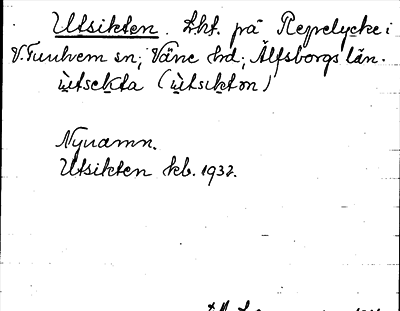 Utsikten. Lht. på Repelycke i
V. Tunhem sn; Väne hd; Älfsborgs län.
ùtsekta (ùtsɩktɷn)
Nynamn.
Utsikten kb. 1932.